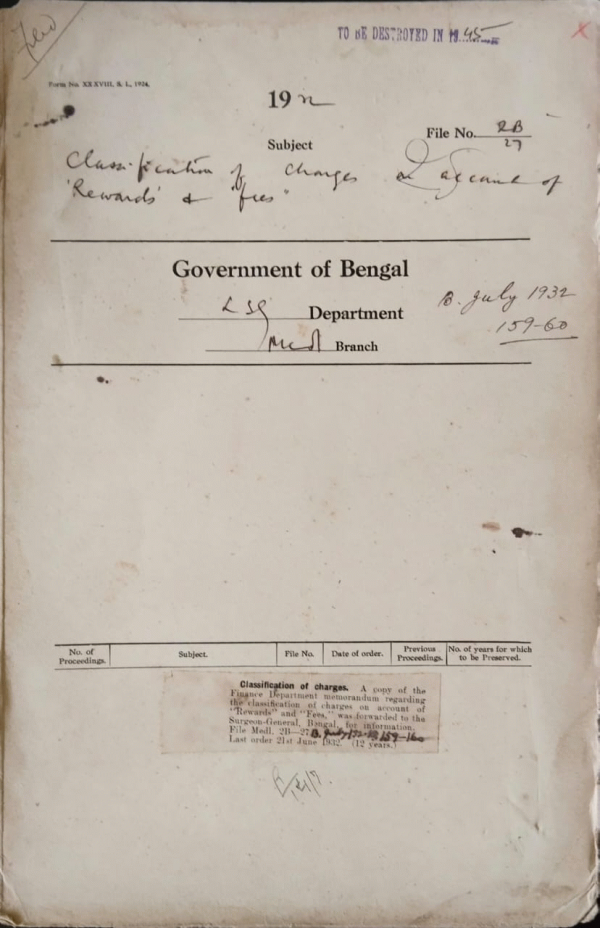 TO BE DESTROYED IN 19 45
Form No. XXXVIII, S. I., 1924.
19
File No. 2B
27
Subject
Classification of charges on account of
'Rewards' & "fees"
Government of Bengal
LSG Department
B. July 1932
159-60
Medl Branch
No. of Proceedings. Subject. File No. Date of order. Previous Proceedings. No. of years for which to be Preserved.
Classification of charges. A copy of the
Finance Department memorandum regarding
the classification of charges on account of
"Rewards" and "Fees," was forwarded to the
Surgeon-General, Bengal, for information.
File Medl. 2B—27 B. July/32 159-160
Last order 21st June 1932. (12 years.)